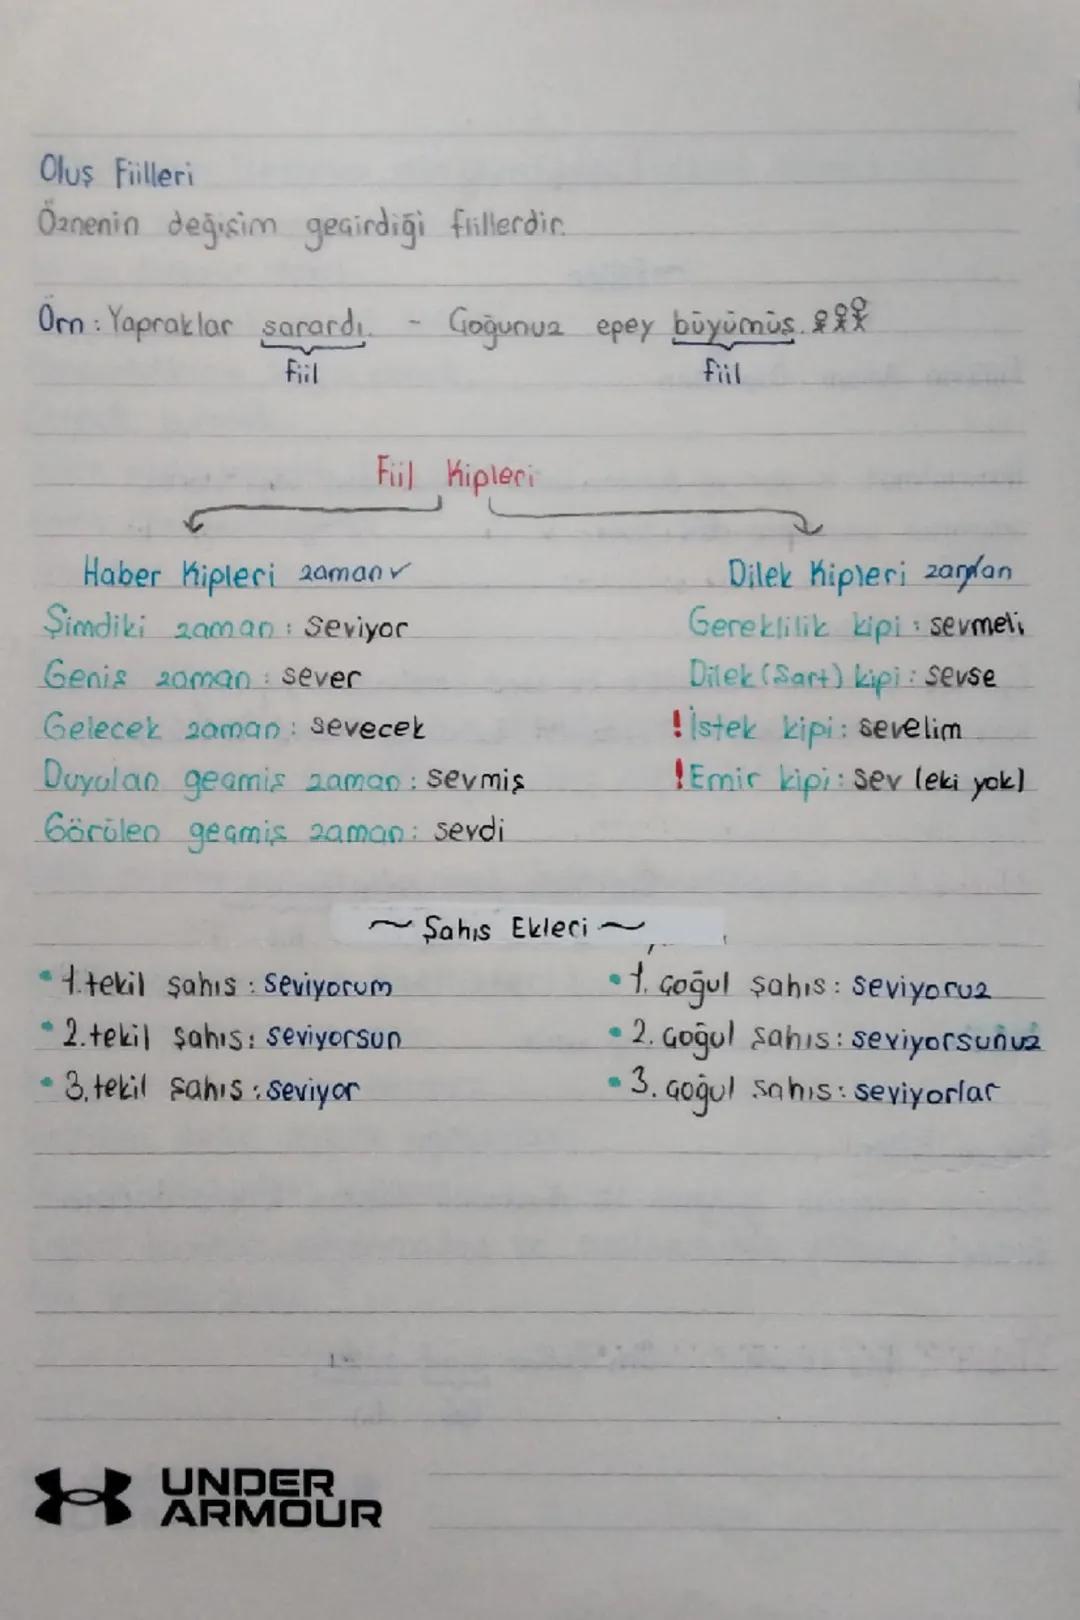 Oluş Fiilleri
Öznenin değişim geçirdiği fiillerdir.
Örn : Yapraklar sarardı. - Çoğunuz epey büyümüş.
fiil fiil
Fiil Kipleri
Haber Kipleri zaman ✓
Dilek Kipleri zaman
Şimdiki zaman : seviyor
Gereklilik kipi : sevmeli
Geniş zaman : sever
Dilek (Şart) kipi : sevse
Gelecek zaman : sevecek
! İstek kipi : sevelim
Duyulan geçmiş zaman : sevmiş
! Emir kipi : sev (eki yok)
Görülen geçmiş zaman : sevdi
~ Şahıs Ekleri ~
• 1. tekil şahıs : seviyorum
• 1. çoğul şahıs : seviyoruz
• 2. tekil şahıs : seviyorsun
• 2. çoğul şahıs : seviyorsunuz
• 3. tekil şahıs : seviyor
• 3. çoğul şahıs : seviyorlar
UNDER
ARMOUR